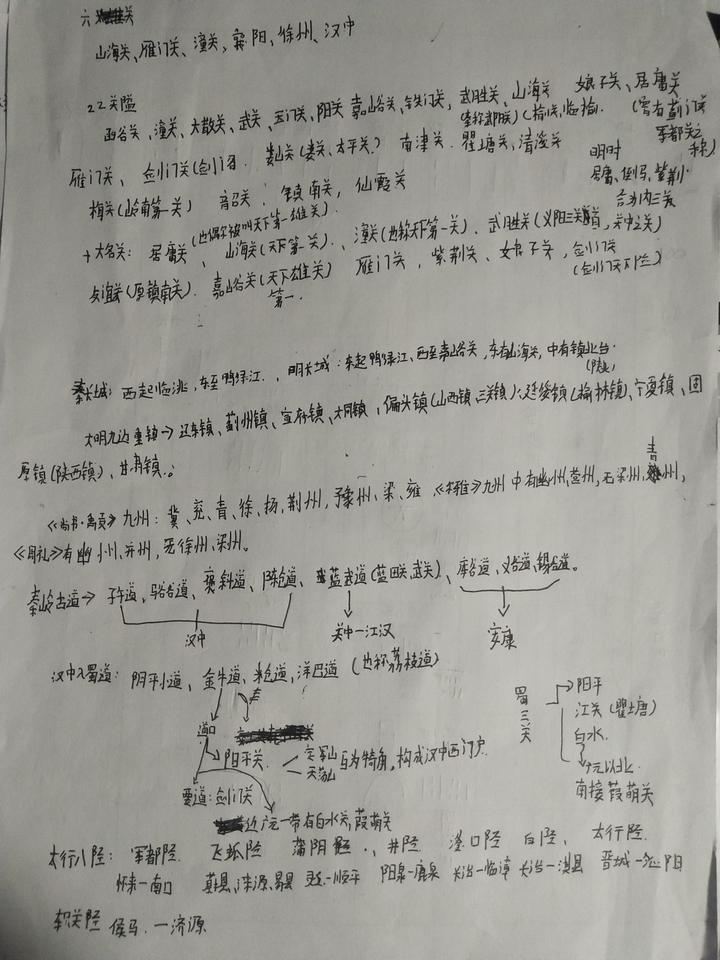 六关
山海关、雁门关、潼关、襄阳、徐州、汉中
22关隘
函谷关、潼关、大散关、武关、玉门关、阳关 嘉峪关、铁门关、武胜关、山海关 娘子关、居庸关
(榆关,临榆) (旁有
军都关之
雁门关、剑门关(剑门 娄山关(娄关、太平关) 南津关、瞿塘关、清流关 明时 称)
居庸、倒马、紫荆
合为内三关
梅关(岭南第一关) 韶关、镇南关、仙霞关
(也偶尔被叫天下第一雄关)
十大名关: 居庸关、山海关(天下第一关)、潼关(也称天下第一关)、武胜关(义阳三关
友谊关(原镇南关)、嘉峪关(天下雄关) 雁门关、紫荆关、娘子关、剑门关
第一 (剑门天下险)
秦长城: 西起临洮,东至鸭绿江、明长城:东起鸭绿江、西至嘉峪关,东有山海关,中有镇北台.
大明九边重镇→辽东镇、蓟州镇、宣府镇、大同镇、偏头镇(山西镇、三关镇)、延绥镇(榆林镇)、宁夏镇、固
原镇(陕西镇)、甘肃镇。
《尚书·禹贡》九州: 冀、兖、青、徐、扬、荆州、豫州、梁、雍、九州中有幽州,营州,无梁州,青州,
《周礼》有幽州、并州,无徐州、梁州。
秦岭古道→子午道、褒斜道、陈仓道、蓝武道(蓝田关,武关)、库谷道、义谷道、锡谷道。
汉中 关中—江汉 安康
汉中入蜀道: 阴平小道、金牛道、米仓道,洋巴道(也称荔枝道)
蜀三关 阳平
江关(瞿塘)
白水
南接葭萌关
阳平关 定军山
天荡山 互为犄角,构成汉中西门户
要道:剑门关
近广元一带有白水关,葭萌关
太行八陉: 军都陉 飞狐陉 蒲阴陉、井陉 滏口陉 白陉、太行陉
怀来—南口 涞源、易县 灵丘—顺平 阳泉—鹿泉 长治—临漳 长治—淇县 晋城—沁阳
轵关陉 侯马—济源